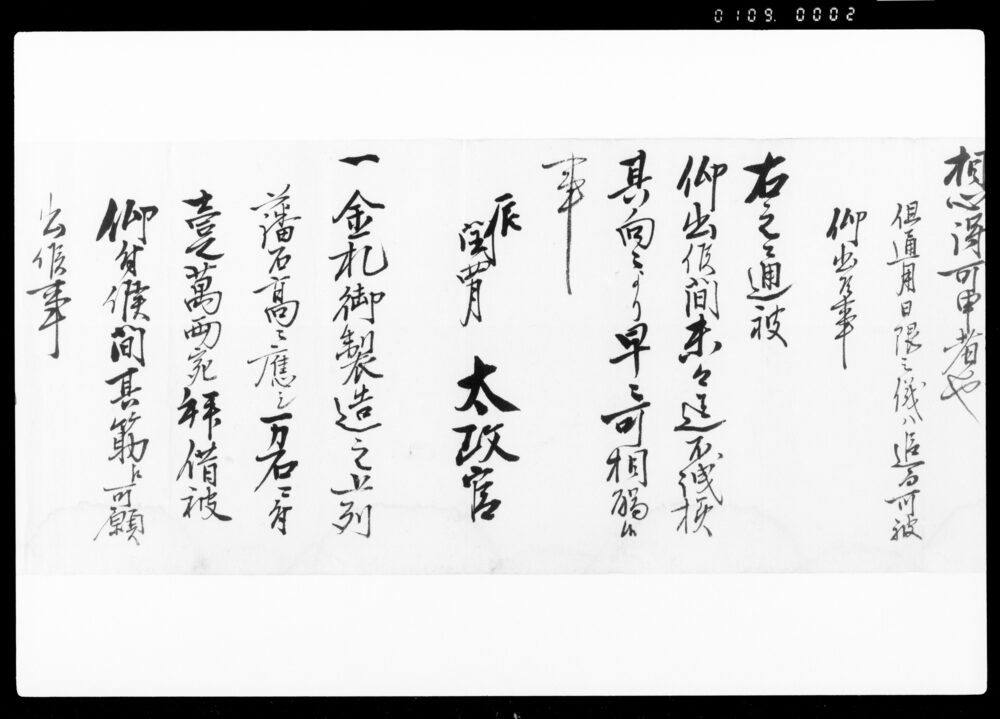 0109. 0002
相心得可申者也
但通用日限之儀ハ追而可被
仰出候事
右之通被
仰出候間末々迄不洩様
其向々より早々可相觸候
事
辰
閏四月 太政官
一金札御製造之上列
藩石高ニ應し万石ニ付
壹萬両宛拝借被
仰付候間其筋ゟ可願
出候事